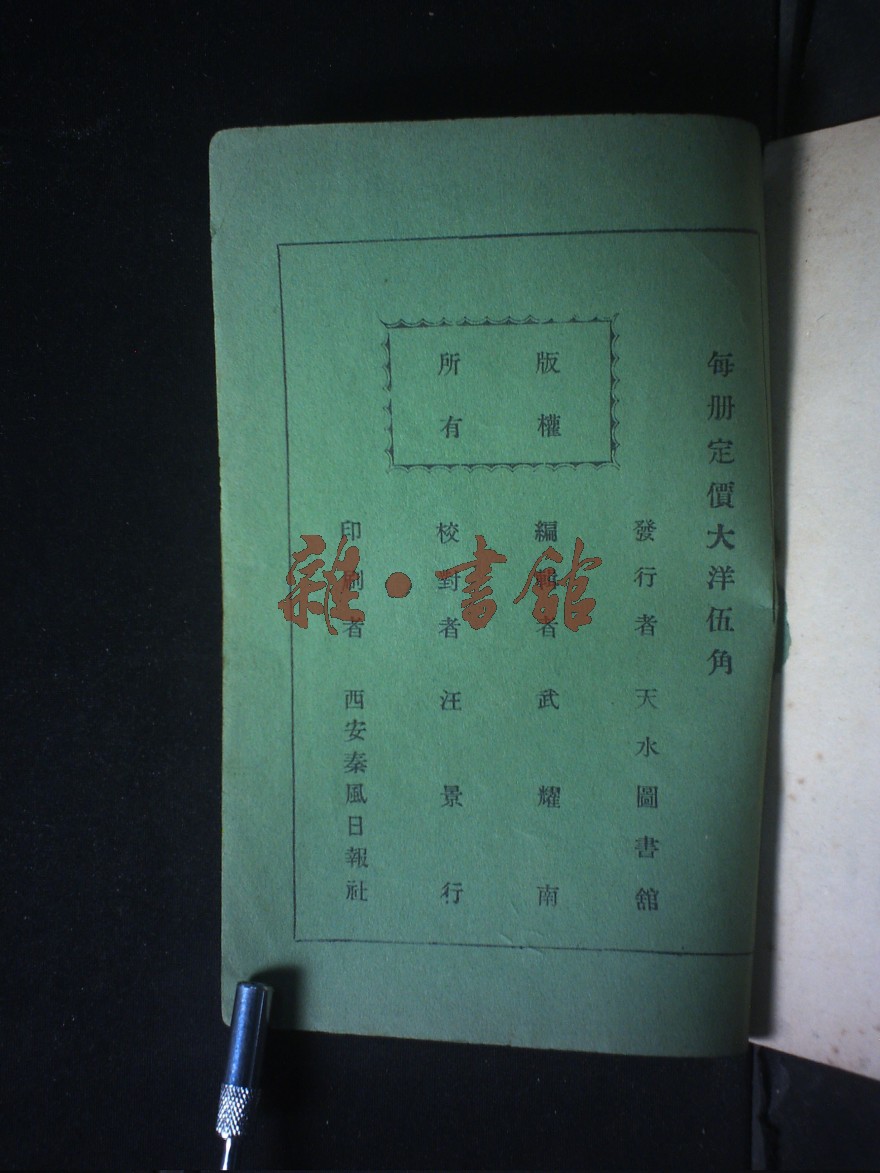 每册定價大洋伍角
發行者 天水圖書館
編輯者 武耀南
校對者 汪景行
印刷者 西安秦風日報社
版權
所有
雜·書館